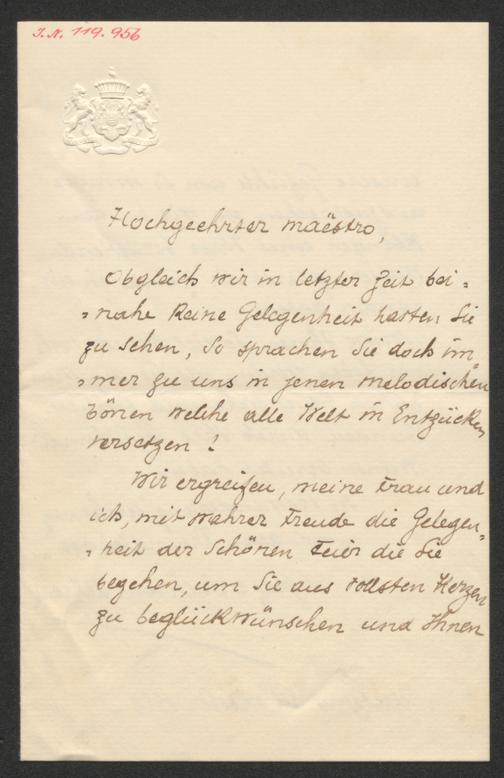 I.N. 119.956
Hochgeehrter maëstro,
Obgleich wir in letzter Zeit bei=
=nahe keine Gelegenheit hatten Sie
zu sehen, so sprachen Sie doch im
=mer zu uns in jenen melodischen
Tönen welche alle Welt in Entzücken
versetzen!
Wir ergreifen, meine Frau und
ich, mit wahrer Freude die Gelegen=
=heit der schönen Feier die Sie
begehen, um Sie aus vollsten Herzen
zu beglückwünschen und Ihnen